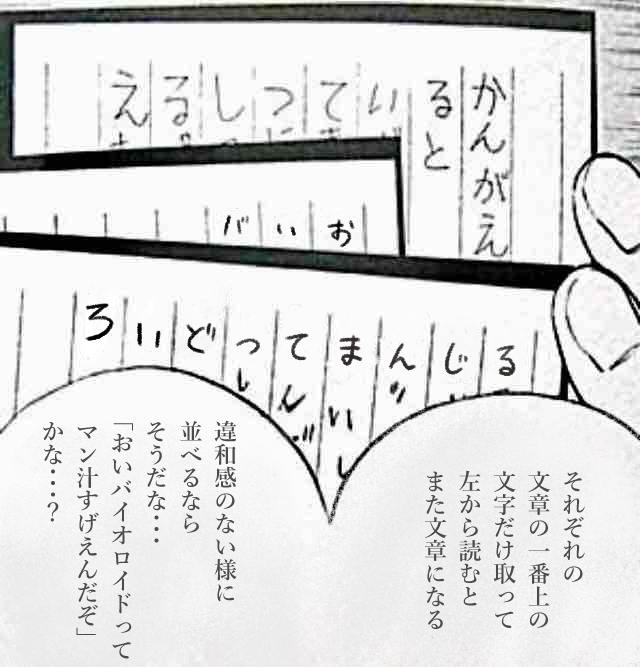 かんがえ
ると
い
て
つ
し
る
え
お
い
バ
る
じ
ん
ま
て
っ
ど
い
ろ
それぞれの
文章の一番上の
文字だけ取って
左から読むと
また文章になる
違和感のない様に
並べるなら
そうだな・・・
「おいバイオロイドって
マン汁すげえんだぞ」
かな・・・？